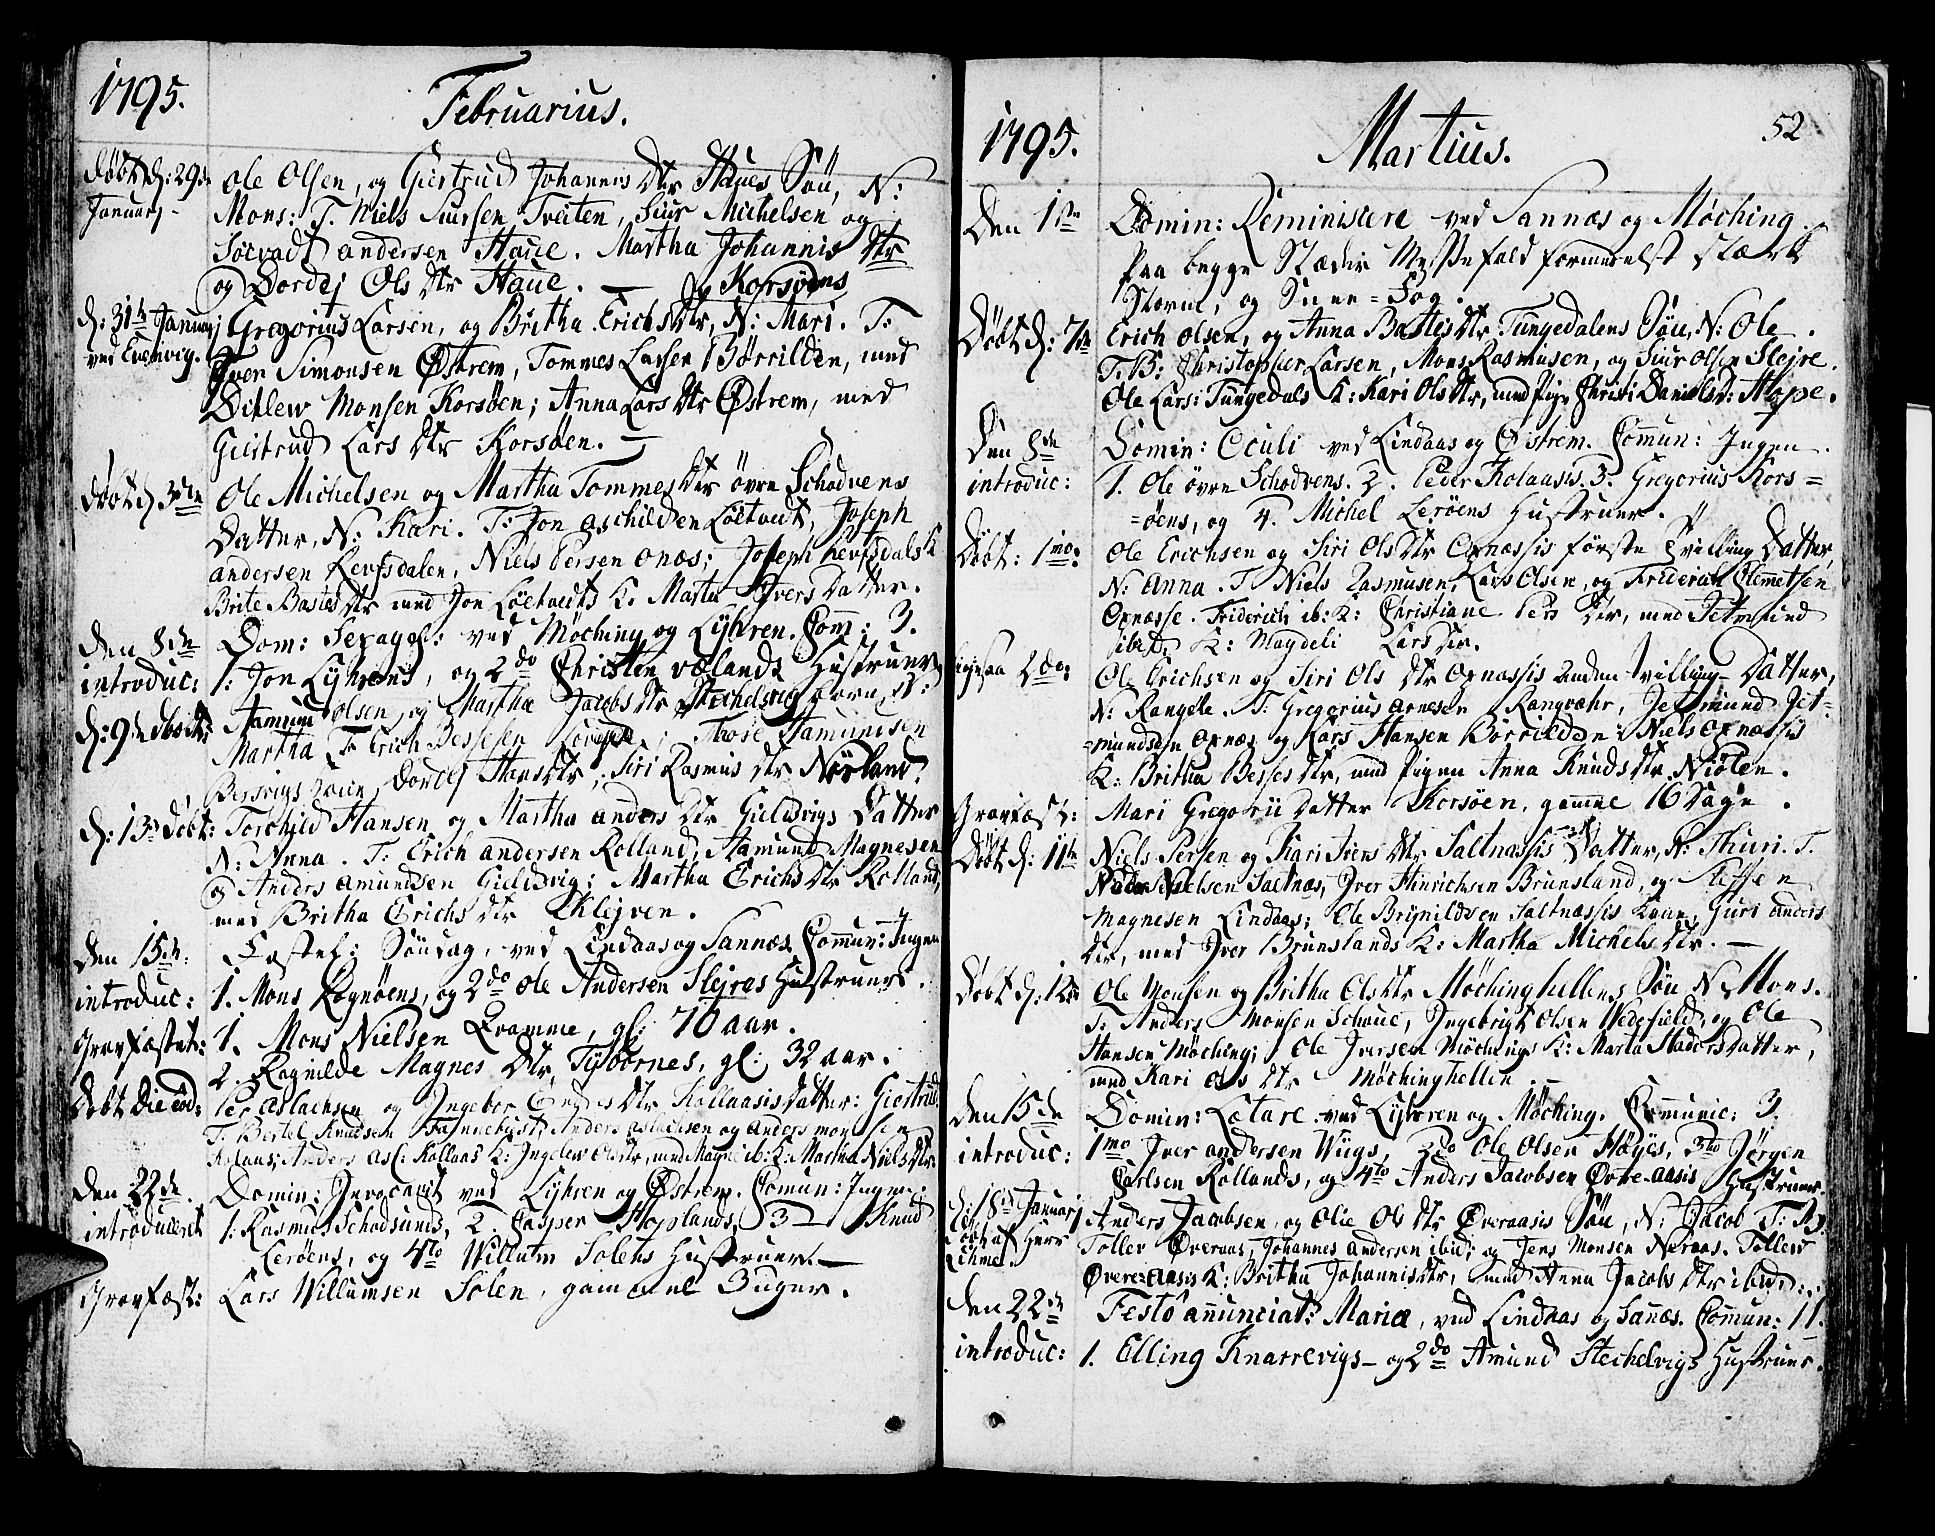 1795. Februarius.
Døbt d: 29de Ole Olsen, og Giertrud Johannes Dtr Haues Søn, N:
Januarj - Mons: T. Niels Siursen Tveiten, Siur Michelsen og
Andersen Haue. Martha Johannis Dtr
og Dordej Ols Dtr Haue. — Korsøens
d: 31te Januarj Gregorius Larsen, og Britha Erichs Dtr, N: Mari. T:
ved Evenvig. Iver Simonsen Østrem, Tommes Larsen Børrilden, med
Ditlew Monsen Korsøen; Anna Lars Dtr Østrem, med
Giertrud Lars Dtr Korsøen. —
Døbt d 3die Ole Michelsen og Martha Tommes Dtr øvre Schodvens
Datter, N: Kari. T: Jon Aschilden Løetvedt, Joseph
Andersen Refsdalen, Niels Persen Onæs; Joseph Refsdals K
Brite Bastes Dtr med Jon Løetvedts K: Marta Ivers Datter.
Den 8de Dom: Sexages: ved Møching og Lyhren. Com: 3.
introduc: 1. Jon Lyhrens, og 2do Christen Vælands Hustruer.
d: 9de døbt: Hamund Olsen, og Martha Jacobs Dtr barn, N:
Martha T: Erich Bessesen Hamundsen
Dordej Hans Dtr, Siri Rasmus Dtr Nørland.
d: 13de Døbt: Torchild Hansen og Martha Anders Dtr Gieldsvigs Datter
N: Anna. T: Erich Andersen Rolland, Hamund Magnesen
og Anders Amundsen Gieldsvig; Martha Erichs Dtr Rolland,
med Britha Erichs Dtr Eklejven.
Den 15de: Fastel: Søndag, ved Lindaas og Sannæs. Commun: Ingen
introduc: 1. Mons Rognøens, og 2do Ole Andersen Slejres Hustruer.
Gravfæstet: 1. Mons Nielsen Qvamme, gl: 76 aar.
2. Ragnilde Magnes Dtr, Tybornes, gl: 32 aar.
Døbt Die eod: Per Aslachsen og Ingebor Dtr Kollaasis Datter: Giertrud.
T: Bertel Knudsen Anders Aslachsen og Anders Monsen
Kolaas; Anders Asl: Kollaas K: Ols Dtr, med Magne ib: K: Martha Niels Dtr
Den 22de. Domin: Invocavit ved Lyhren og Østrem. Comun: Ingen.
introduceret 1. Rasmus Schodsunds, 2. Casper Hoplands, 3— Knud
Lerøens, og 4to Willum Solens Hustruer. —
Gravfæst: Lars Willumsen Solen, gammel 3 uger.
1795. Martius. 52
Den 1ste Domin: Reminiscere ved Sannæs og Møching.
Paa begge Stæder Messefald formedelst stærk
Storm, og Snee-Fog.
Døbt d: 7de Erich Olsen, og Anna Bastes Dtr Tungedalens Søn, N: Ole.
T: B: Christopher Larsen, Mons Rasmusen, og Siur Olsen Slejre.
Ole Lars: Tungedals K: Kari Ols Dtr, med Pige Christi Daniels D: Hope.
Den 8de Domin: Oculi ved Lindaas og Østrem. Commun: Ingen.
introduc: 1. Ole øvre Schodvens. 2. Peder Kolaasis. 3. Gregorius Kors=
=øens, og 4. Michel Lerøens Hustruer.
Døbt: 1mo: Ole Erichsen og Siri Ols Dtr Opnæssis første Tvilling Datter,
N: Anna. T. Niels Rasmusen, Lars Olsen, og Friderich Clemetsen
Opnæsse. Friderich ib: K: Christiane Pers Dtr, med Jetmund
ibid: K: Magdeli Lars Dtr.
2do: Ole Erichsen og Siri Ols Dtr Opnæssis anden Tvilling Datter,
N: Rangele. T: Gregorius Arnesen Rongvæhr, Jetmund Jet-
=mundsen Opnæs og Lars Hansen Børrilden: Niels Opnæssis
K: Britha Besses Dtr, med Pigen Anna Knuds Dtr Niøten.
Gravfæst: Mari Gregorii Datter Korsøen, gamme 16 Dage.
Døbt d: 11te Niels Persen og Kari Iens Dtr Saltnæssis Datter, N: Thuri. T.
Nielsen Saltnæs, Iver Hinrichsen Brunsland, og Steffen
Magnesen Lindaas; Ole Brynildsen Saltnæssis Kone, Guri Anders
Dtr, med Iver Brunslands K: Martha Michels Dtr. —
Døbt d: 12te Ole Monsen og Britha Ols Dtr Møchinghellens Søn N: Mons.
T: Anders Monsen Schoue, Ingebrigt Olsen Wedefield, og Ole
Hansen Møching; Ole Iversen Møchings K: Marta Hadors Datter,
med Kari Ols Dtr Møchinghellen
Den 15de Domin: Lætare ved Lyhren og Møching. Communic: 3.
introduc: 1mo Iver Andersen Wugs, 2do Ole Olsen Høyes, 3tio Jørgen
Carlsen Rollands, og 4to Anders Jacobsen Øvre-Aasis Hustruer.
d: 18de Januarj Anders Jacobsen, og Olie Ols Dtr Øveraasis Søn, N: Jacob. T:
døbt af Herr Tollev Øveraas, Johannes Andersen ibid: og Jens Monsen Neraas. Tollev
Øvere-Aasis K: Britha Johannis Dtr, med Anna Jacobs Dtr ibid:
Den 22de Festo Annunciat: Mariæ, ved Lindaas og Sanæs. Commun: 11.
introduc: 1. Elling Knarrevigs- og 2do Amund Stechelvigs Hustruer.